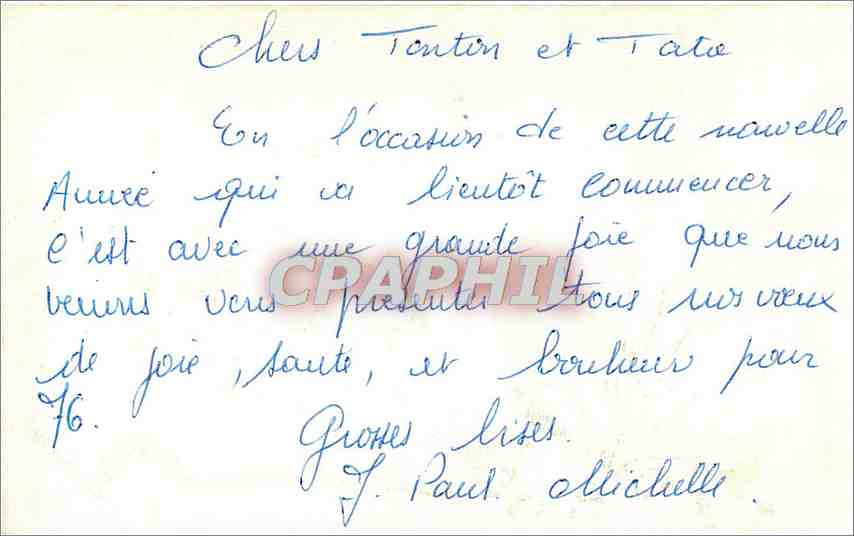 Chers Tonton et Tata
En l'occasion de cette nouvelle
Année qui va bientôt commencer,
c'est avec une grande joie que nous
venons vous présenter tous nos vœux
de joie, santé, et bonheur pour
76.
Grosses bises.
J. Paul. Michelle.
CPAPHIL